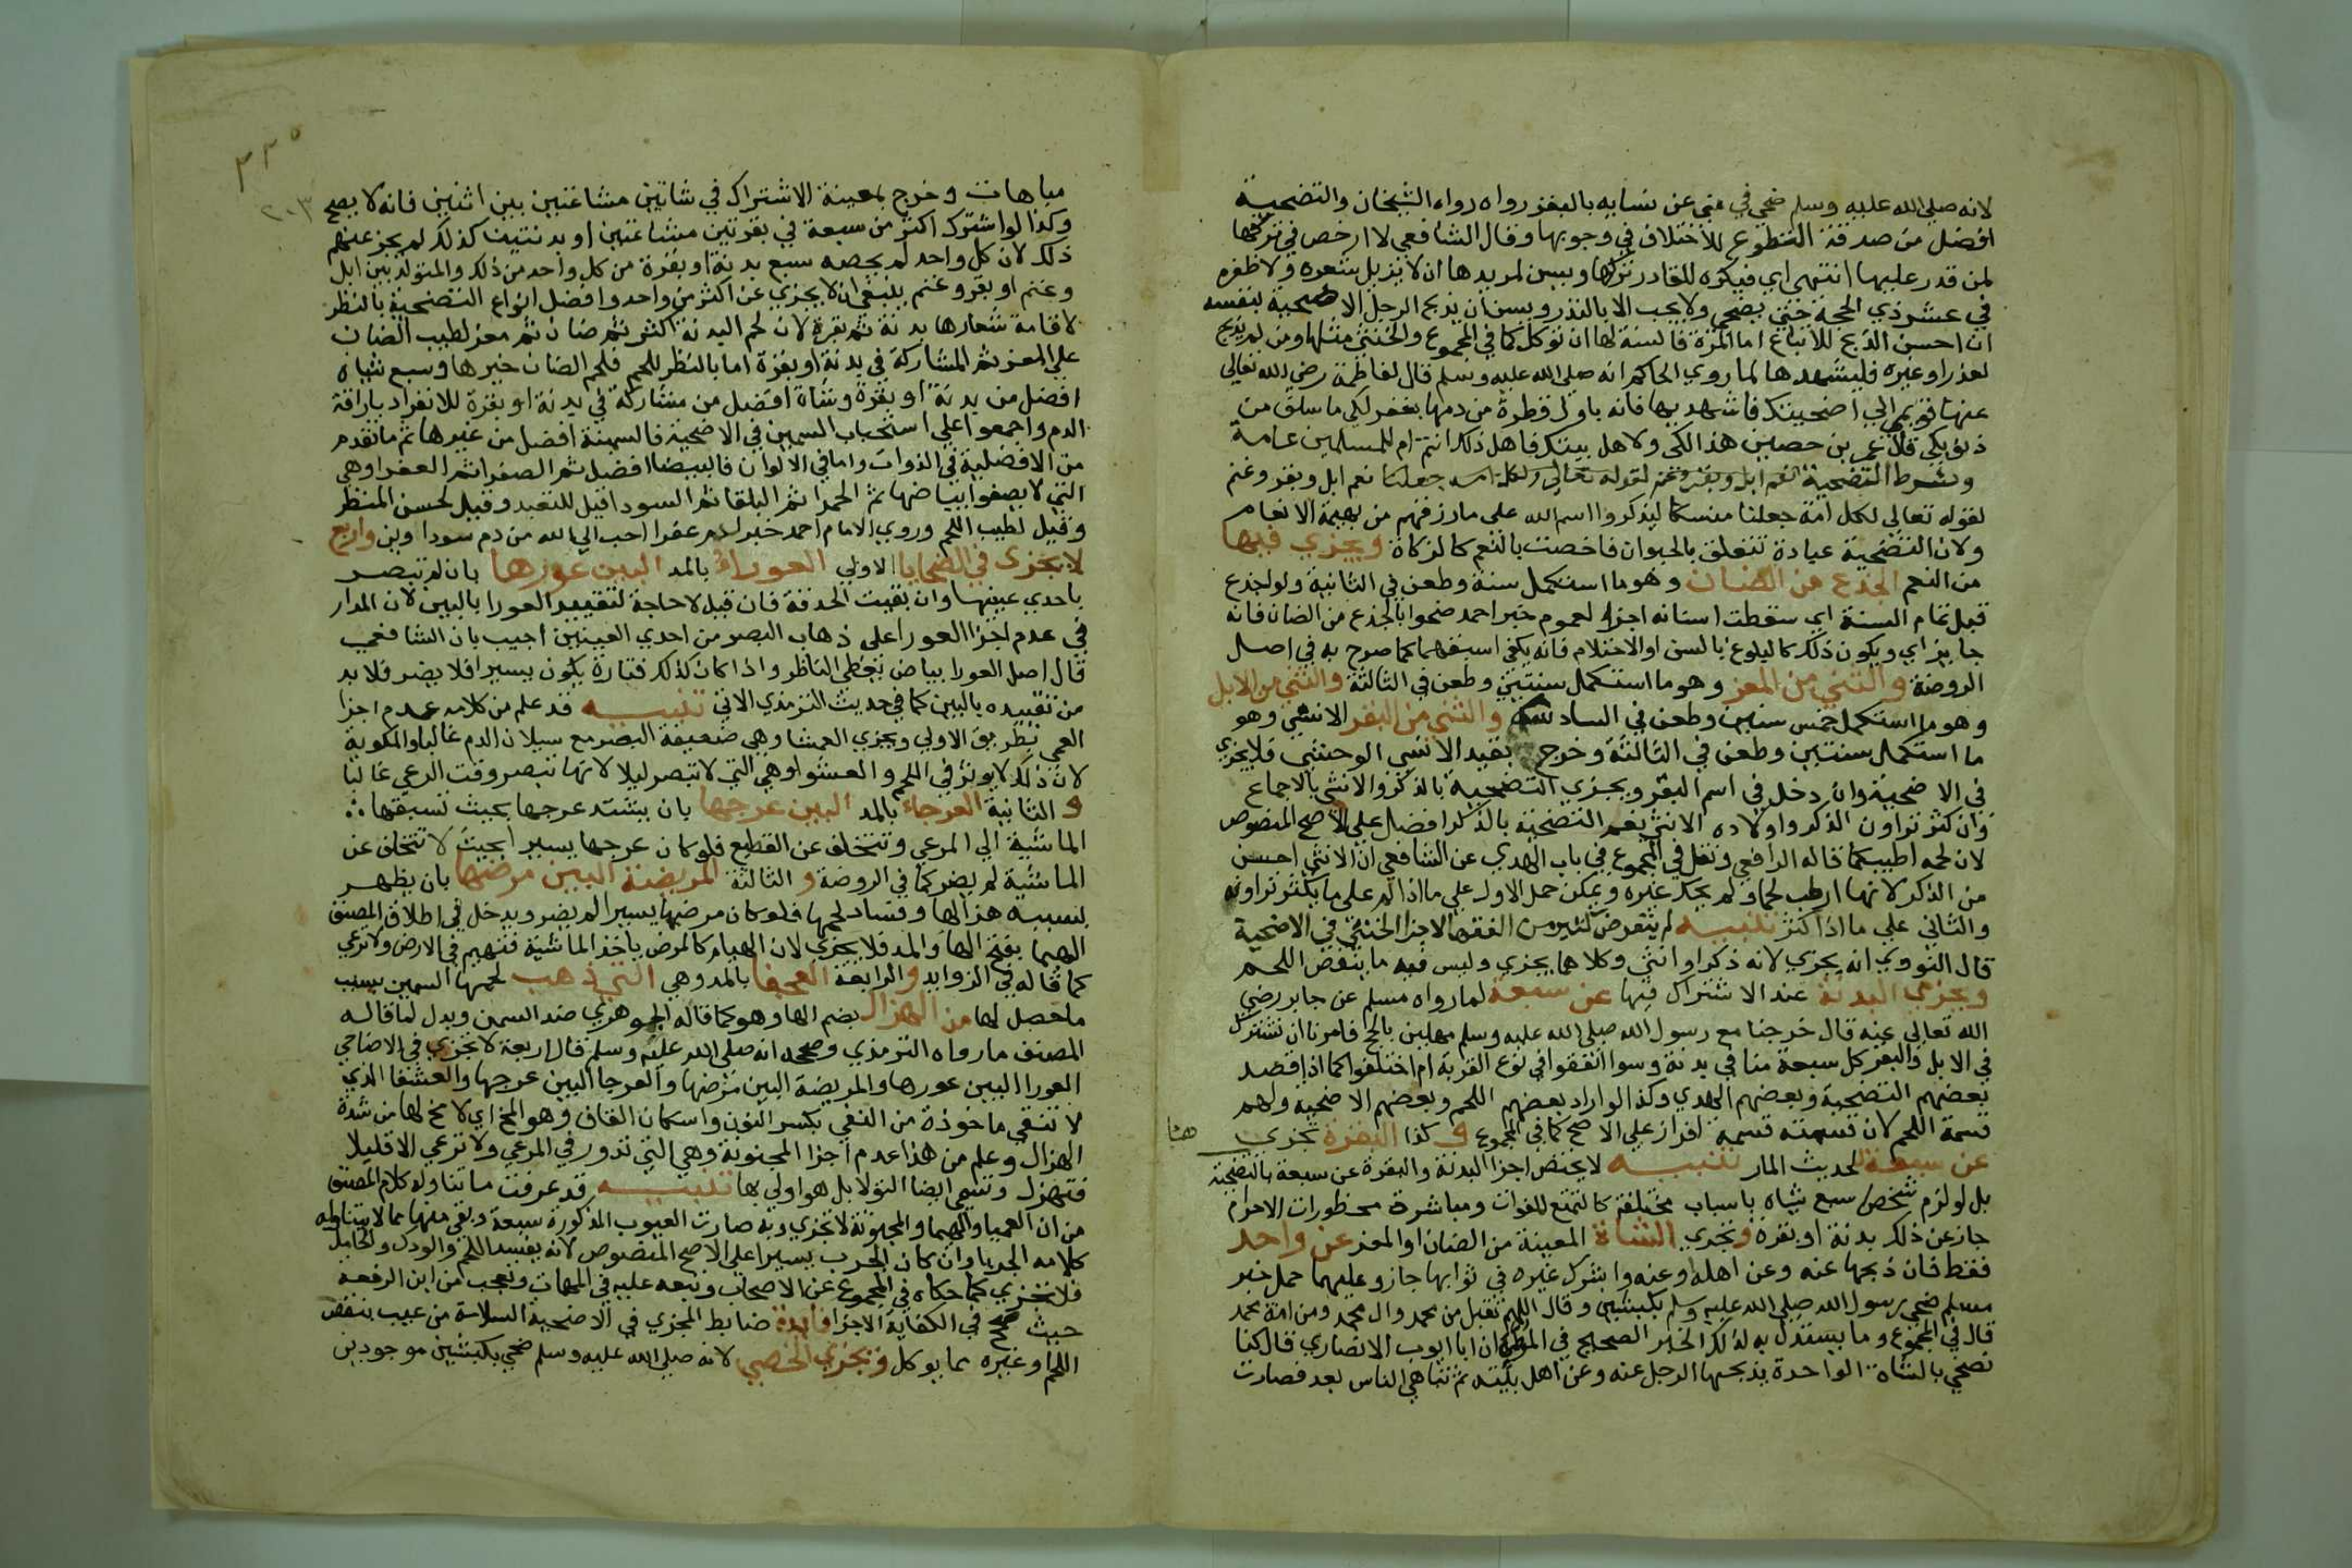 لانه صلى الله عليه وسلم ضحي في مني عن نسايه بالبقر رواه رواه الشيخان والتضحية
افضل من صدقة التطوع للاختلاف في وجوبها وقال الشافعي لا ارخص في تركها
لمن قدر عليها انتهى اي فيكره للقادر تركها ويسن لمريدها ان لا يزيل شعره ولا ظفره
في عشر ذي الحجة حتي يضحي ولا يجب الا بالنذر ويسن ان يذبح الرجل الاضحية بنفسه
ان احسن الذبح للاتباع اما المرة فالسنة لها ان توكل كما في المجموع والخنثي مثلها ومن لم يذبح
لعذر او غيره فليشهدها لما روي الحاكم انه صلى الله عليه وسلم قال لفاطمة رضي الله تعالى
عنها قومي الي اضحيتك فاشهديها فانه باول قطرة من دمها يغفر لكي ما سلف من
ذنوبكي قال عمر بن حصين هذا لكي ولاهل بيتك فاهل ذلك انتم ام للمسلمين عامة
وشرط التضحية نعم ابل وبقر وغنم لقوله تعالي ولكل امة جعلنا نعم ابل وبقر وغنم
لقوله تعالي لكل امة جعلنا منسكا ليذكروا اسم الله على ما رزقهم من بهيمة الانعام
ولان التضحية عبادة تتعلق بالحيوان فاختصت بالنعم كالزكاة ويجزي فيها
من النعم الجذع من الضان وهو ما استكمل سنة وطعن في الثانية ولو اجذع
قبل تمام السنة اي سقطت اسنانه اجزا لعموم خبر احمد ضحوا بالجذع من الضان فانه
جايز اي ويكون ذلك كالبلوغ بالسن او الاحتلام فانه يكفي اسبقهما كما صرح به في اصل
الروضة والثني من المعز وهو ما استكمل سنتين وطعن في الثالثة والثني من الابل
وهو ما استكمل خمس سنين وطعن في السادسة والثني من البقر الانسي وهو
ما استكمل سنتين وطعن في الثالثة وخرج بقيد الانسي الوحشي فلا يجزي
في الاضحية وان دخل في اسم البقر ويجزي التضحية بالذكر والانثي بالاجماع
وان كثر نزوان الذكر واولاده الانثي نعم التضحية بالذكر افضل علي الاصح المنصوص
لان لحمه اطيب كما قاله الرافعي ونقل في المجموع في باب الهدي عن الشافعي ان الانثي احسن
من الذكر لانها ارطب لحما ولم يحك غيره ويمكن حمل الاول علي ما اذا لم على ما يكثر نزوانه
والثاني علي ما اذا كثر تنبيه لم يتعرض كثير من الفقها لاجزا الخنثي في الاضحية
قال النووي انه يجزي لانه ذكر او انثي وكلاهما يجزي وليس فيه ما ينقص اللحم
ويجزي البدنة عند الاشتراك فيها عن سبعة لما رواه مسلم عن جابر رضي
الله تعالي عنه قال خرجنا مع رسول الله صلى الله عليه وسلم مهلين بالحج فامرنا ان نشترك
في الابل والبقر كل سبعة منا في بدنة وسوا اتفقوا في نوع القربة ام اختلفوا كما اذا قصد
بعضهم التضحية وبعضهم الهدي وكذا لو اراد بعضهم اللحم وبعضهم الاضحية ولهم
قسمة اللحم لان قسمته قسمة افراز علي الاصح كما في المجموع و كذا البقرة تجزي هنا
عن سبعة للحديث المار تنبيه لا يختص اجزا البدنة والبقرة عن سبعة بالتضحية
بل لو لزم شخص سبع شياه باسباب مختلفة كالتمتع للفوات ومباشرة محظورات الاحرام
جاز عن ذلك بدنة او بقرة وتجزي الشاة المعينة من الضان او المعز عن واحد
فقط فان ذبحها عنه وعن اهله او عنه واشرك غيره في ثوابها جاز وعليهما حمل خبر
مسلم ضحي رسول الله صلى الله عليه وسلم بكبشين وقال اللهم تقبل من محمد وال محمد ومن امة محمد
قال في المجموع وما يستدل به لذلك الخبر الصحيح في الموطا ان ابا ايوب الانصاري قال كنا
نضحي بالشاة الواحدة يذبحها الرجل عنه وعن اهل بيته ثم تباهي الناس بعد فصارت
٣٣٥
٢٠٣
مباهات وخرج بمعينة الاشتراك في شاتين مشاعتين بين اثنين فانه لا يصح
وكذا لو اشترك اكثر من سبعة في بقرتين مشاعتين او بدنتين كذلك لم يجز عنهم
ذلك لان كل واحد لم يخصه سبع بدنة او بقرة من كل واحد من ذلك والمتولد بين ابل
وغنم او بقر وغنم ينبغي ان لا يجزي عن اكثر من واحد وافضل انواع التضحية بالنظر
لاقامة شعارها بدنة ثم بقرة لان لحم البدنة اكثر ثم ضان ثم معز لطيب الضان
علي المعز ثم المشاركة في بدنة او بقرة اما بالنظر للحم فلحم الضان خيرها وسبع شياه
افضل من بدنة او بقرة وشاة افضل من مشاركة في بدنة او بقرة للانفراد باراقة
الدم واجمعوا علي استحباب السمين في الاضحية فالسمينة افضل من غيرها ثم ما تقدم
من الافضلية في الذوات واما في الالوان فالبيضا افضل ثم الصفرا ثم العفرا وهي
التي لا يصفوا بياضها ثم الحمرا ثم البلقا ثم السودا قيل للتعبد وقيل لحسن المنظر
وقيل لطيب اللحم وروي الامام احمد خبر لدم عفرا احب الي الله من دم سوداوين واربع
لا يجزى في الضحايا الاولي العوراء بالمد البين عورها بان لم تبصر
باحدي عينيها وان بقيت الحدقة فان قيل لا حاجة لتقييد العورا بالبين لان المدار
في عدم اجزا العورا على ذهاب البصر من احدي العينين اجيب بان الشافعي
قال اصل العورا بياض يغطي الناظر واذا كان كذلك فتارة يكون يسيرا فلا يضر فلا بد
من تقييده بالبين كما في حديث الترمذي الاتي تنبيه قد علم من كلامه عدم اجزا
العمي بطريق الاولي ويجزي العمشا وهي ضعيفة البصر مع سيلان الدم غالبا والمكوية
لان ذلك لا يوثر في اللحم والعشوا وهي التي لا تبصر ليلا لانها تبصر وقت الرعي غالبا
و الثانية العرجاء بالمد البين عرجها بان يشتد عرجها بحيث تسبقها
الماشية الي المرعي وتتخلف عن القطيع فلو كان عرجها يسيرا بحيث لا تتخلف عن
الماشية لم يضر كما في الروضة و الثالثة المريضة البين مرضها بان يظهر
بسببه هزالها وفساد لحمها فلو كان مرضها يسيرا لم يضر ويدخل في اطلاق المصنف
الهيما بفتح الها والمد فلا يجزي لان الهيام كالمرض ياخذ الماشية فتهيم في الارض ولا ترعي
كما قاله في الزوايد والرابعة العجفا بالمد وهي التي ذهب لحمها السمين بسبب
ما حصل لها من الهزال بضم الها وهو كما قاله الجوهري ضد السمن ويدل لما قاله
المصنف ما رواه الترمذي وصححه انه صلى الله عليه وسلم قال اربعة لا يجزي في الاضاحي
العورا البين عورها والمريضة البين مرضها والعرجا البين عرجها والعشفا الذي
لا تنقي ماخوذة من النقي بكسر النون واسكان القاف وهو المخ اي لا مخ لها من شدة
الهزال وعلم من هذا عدم اجزا المجنونة وهي التي تدور في المرعي ولا ترعي الا قليلا
فتهزل وتسمي ايضا التولا بل هو اولي بها تنبيه قد عرفت ما تناوله كلام المصنف
من ان العميا والهيما والمجنونة لا تجزي وبه صارت العيوب المذكورة سبعة وبقي منها ما لا يتناوله
كلامه الجربا وان كان الجرب يسيرا على الاصح المنصوص لانه يفسد اللحم والودك والحامل
فلا تجزي كما حكاه في المجموع عن الاصحاب وتبعه عليه في المهمات وتعجب من ابن الرفعه
حيث صحح في الكفاية الاجزا فايدة ضابط المجزي في الاضحية السلامة من عيب ينقص
اللحم او غيره مما يوكل ويجزي الخصي لانه صلى الله عليه وسلم ضحي بكبشين موجودين